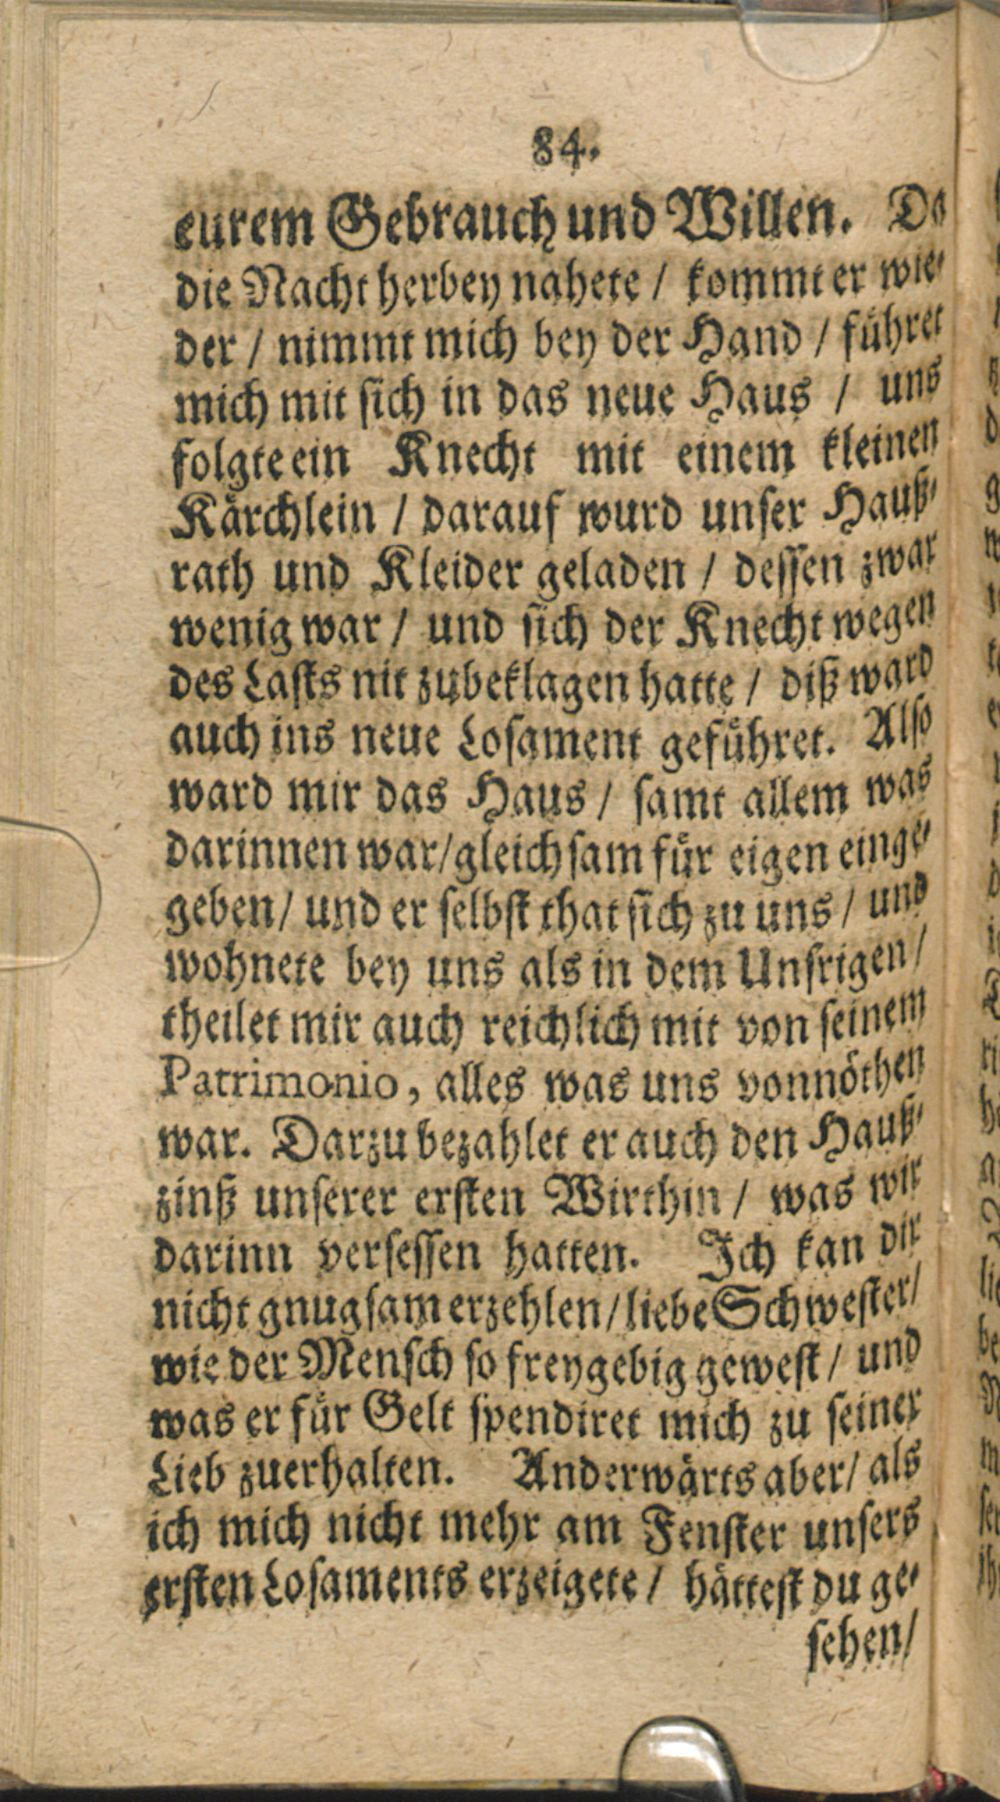 84.
eurem Gebrauch und Willen. Da
die Nacht herbey nahete / kommt er wie-
der / nimmt mich bey der Hand / führet
mich mit sich in das neue Haus / uns
folgte ein Knecht mit einem kleinen
Kärchlein / darauf wurd unser Hauß-
rath und Kleider geladen / dessen zwar
wenig war / und sich der Knecht wegen
des Lasts nit zubeklagen hatte / diß ward
auch ins neue Losament geführet. Also
ward mir das Haus / samt allem was
darinnen war / gleichsam für eigen einge-
geben / und er selbst that sich zu uns / und
wohnete bey uns als in dem Unsrigen /
theilet mir auch reichlich mit von seinem
Patrimonio, alles was uns vonnöthen
war. Darzu bezahlet er auch den Hauß-
zinß unserer ersten Wirthin / was wir
darinn versessen hatten. Ich kan dir
nicht gnugsam erzehlen / liebe Schwester /
wie der Mensch so freygebig gewest / und
was er für Gelt spendiret mich zu seiner
Lieb zuerhalten. Anderwärts aber / als
ich mich nicht mehr am Fenster unsers
ersten Losaments erzeigete / hättest du ge-
sehen /